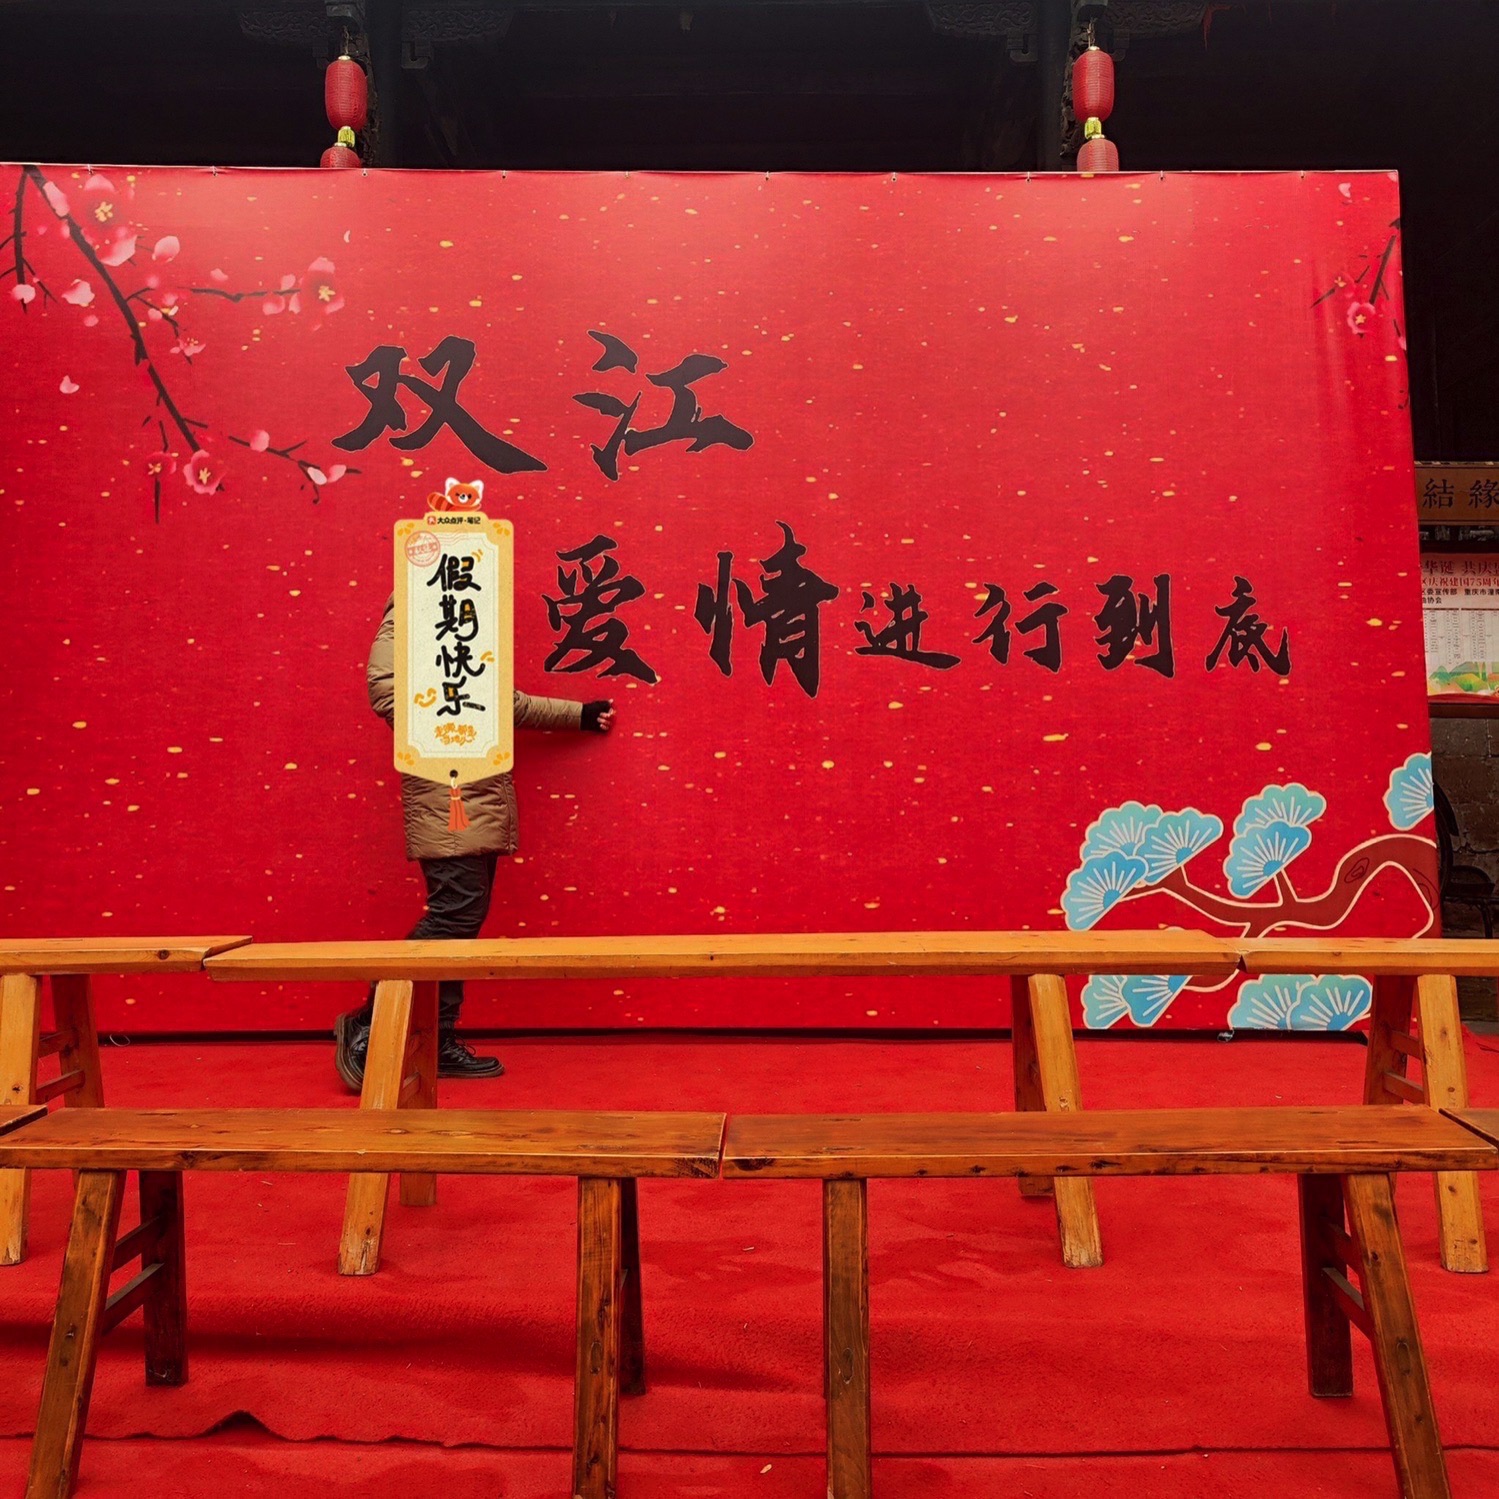 双江
爱情进行到底
大众点评·笔记
假期快乐
結緣
华诞 共庆
区庆祝建国75周年
区委宣传部 重庆市潼南
协会